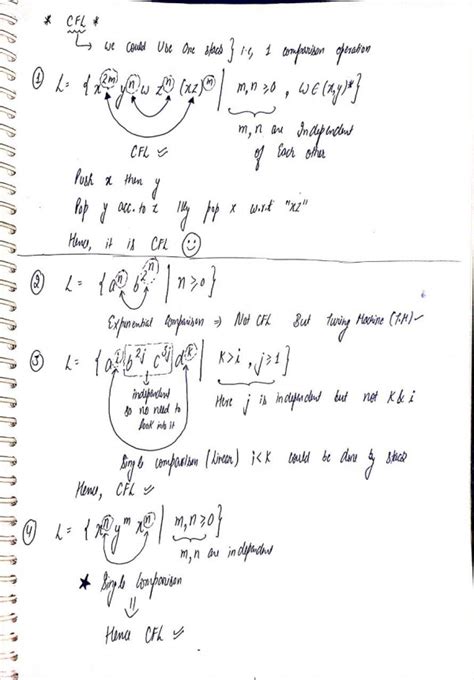 * CFL *
↳ We could Use One stack } i.e, 1 comparison operation
① L = { x^2m y^n w z^n (xz)^m | m,n ≥ 0 , w ∈ (x,y)* }
m,n are Independent of Each other
CFL ✓
Push x then y
Pop y acc. to z lly pop x w.r.t "xz"
Hence, it is CFL ☺
② L = { a^n b^2^n | n ≥ 0 }
Exponential Comparison ⇒ Not CFL But Turing Machine (T.M) ✓
③ L = { a^i b^2j c^3j d^k | k > i , j ≥ 1 }
independent
so no need to
look into it
Here j is independent but not k & i
Single comparison (Linear) i < k could be done by stack
Hence, CFL ✓
④ L = { x^n y^m x^n | m,n ≥ 0 }
m,n are independent
★ Single Comparison
⇓
Hence CFL ✓